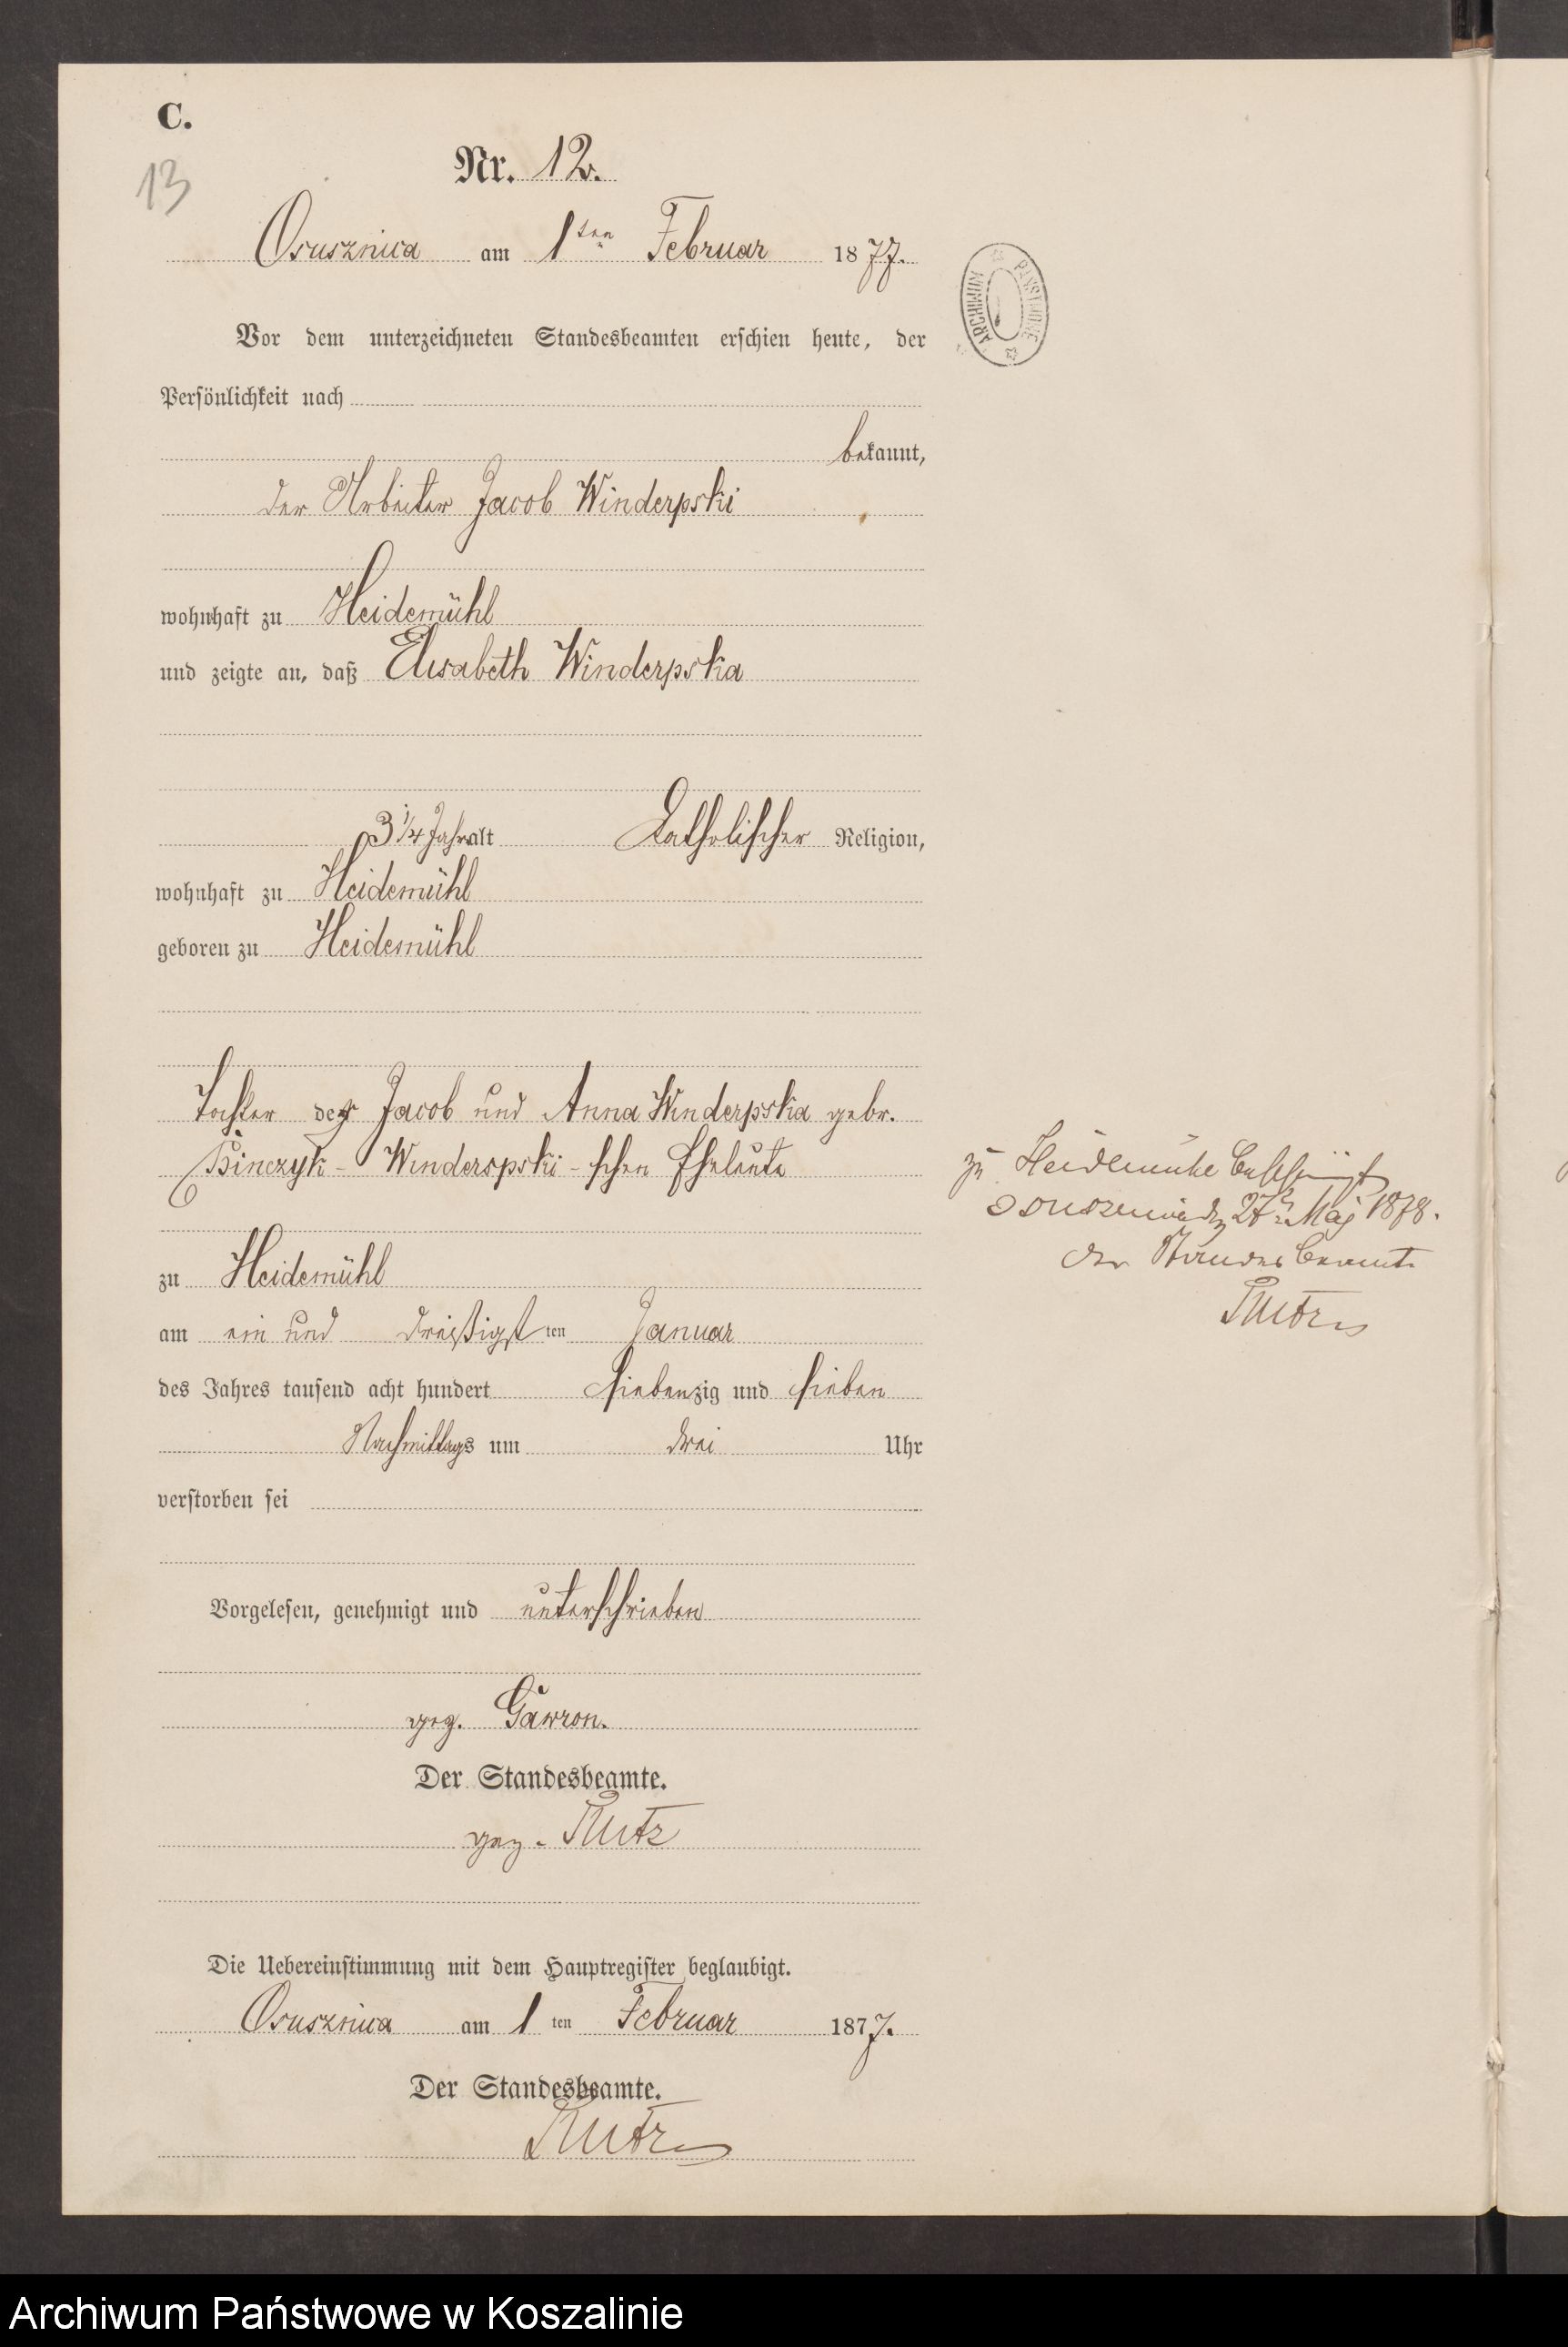 C.
13
Nr. 12.
Osusznica am 1ten Februar 1877.
ARCHIWUM PAŃSTWOWE
Vor dem unterzeichneten Standesbeamten erschien heute, der
Persönlichkeit nach
bekannt,
der Arbeiter Jacob Winderpski
wohnhaft zu Heidemühl
und zeigte an, daß Elisabeth Winderpska
3 1/4 Jahr alt Katholischer Religion,
wohnhaft zu Heidemühl
geboren zu Heidemühl
Tochter der Jacob und Anna Winderpska gebr.
Binczyk - Winderspski - schen Eheleute
zu Heidemühl
am ein und dreißigsten Januar
des Jahres tausend acht hundert siebenzig und sieben
Nachmittags um drei Uhr
verstorben sei
zu Heidemühl
27 Maj 1878.
der Standesbeamte
Vorgelesen, genehmigt und unterschrieben
gez. Gawron.
Der Standesbeamte.
gez.
Die Uebereinstimmung mit dem Hauptregister beglaubigt.
Osusznica am 1 ten Februar 1877.
Der Standesbeamte.
Archiwum Państwowe w Koszalinie